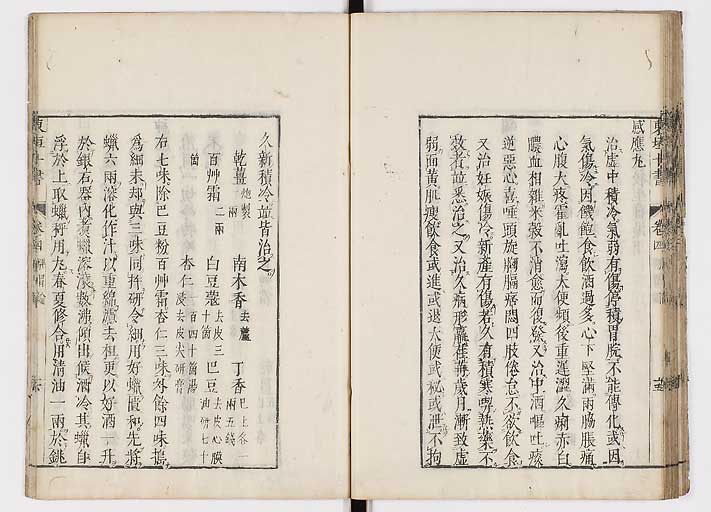 感應丸
治虛中積冷氣弱有傷停積胃脘不能傳化或因
氣傷冷因饑飽食飲酒過多心下堅滿兩脇脹痛
心腹大疼霍亂吐瀉大便頻後重遲澀久痢赤白
膿血相雜米穀不消愈而復發又治中酒嘔吐痰
逆惡心喜唾頭旋胸膈痞悶四肢倦怠不欲飲食
又治妊娠傷冷新產有傷若久有積寒喫熱藥不
效者並悉治之又治久病形羸荏苒歲月漸致虛
弱面黃肌瘦飲食或進或退大便或秘或泄不拘
久新積冷並皆治之
乾薑炮製一兩 南木香去蘆 丁香已上各一兩五錢
百草霜二兩 白豆蔻去皮三十箇 巴豆去皮心膜油研七十
箇 杏仁一百四十箇湯浸去皮尖研膏
右七味除巴豆粉百草霜杏仁三味外餘四味搗
爲細末却與三味同拌研令細用好蠟匱和先將
蠟六兩溶化作汁以重綿濾去柤更以好酒一升
於銀石器內煮蠟溶滾數沸傾出候酒冷其蠟自
浮於上取蠟秤用丸春夏修合用清油一兩於銚